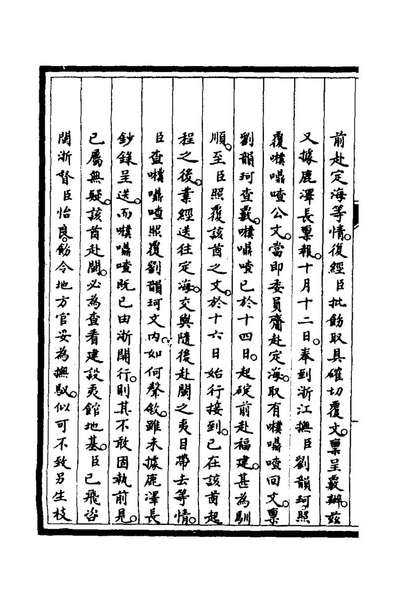 前赴定海等情。復經臣批飭取具確切覆文稟呈覈辦。茲
又據鹿澤長稟報。十月十二日。奉到浙江撫臣劉韻珂照
覆㗶囁喳公文。當即委員齎赴定海。取有㗶囁喳回文。稟
劉韻珂查覈。㗶囁喳已於十四日。起碇前赴福建。甚為馴
順。至臣照覆該酋之文。於十六日始行接到。已在該酋起
程之後。業經送往定海。交與隨後赴閩之夷目帶去等情。
臣查㗶囁喳照覆劉韻珂文內。如何聲敘。雖未據鹿澤長
鈔錄呈送。而㗶囁喳既已由浙開行。則其不敢固執前見。
已屬無疑。該酋赴閩。必為查看建設夷館地基。臣已飛咨
閩浙督臣怡良。飭令地方官妥為撫馭。似可不致另生枝